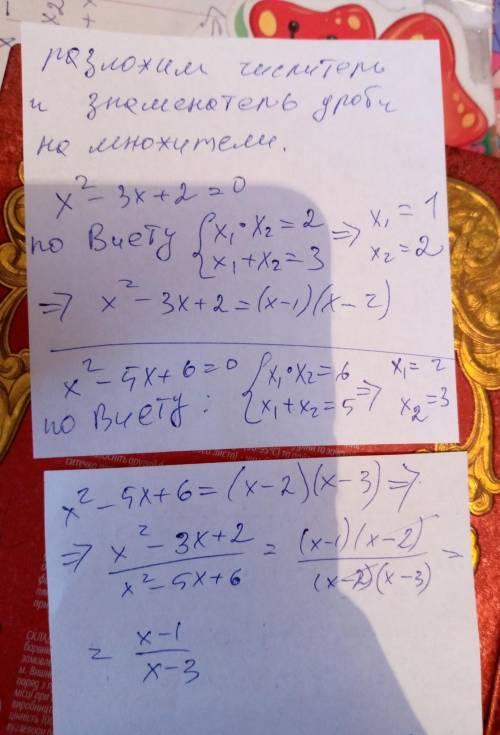 разложим числитель
и знаменатель дроби
на множители.
x² - 3x + 2 = 0
по Виету { x₁ · x₂ = 2 ⇒ x₁ = 1
x₁ + x₂ = 3 x₂ = 2
⇒ x² - 3x + 2 = (x-1)(x-2)
x² - 5x + 6 = 0 { x₁ · x₂ = 6 ⇒ x₁ = 2
по Виету: x₁ + x₂ = 5 x₂ = 3
x² - 5x + 6 = (x-2)(x-3) ⇒
⇒ (x² - 3x + 2)/(x² - 5x + 6) = ((x-1)(x-2))/((x-2)(x-3)) =
= (x-1)/(x-3)